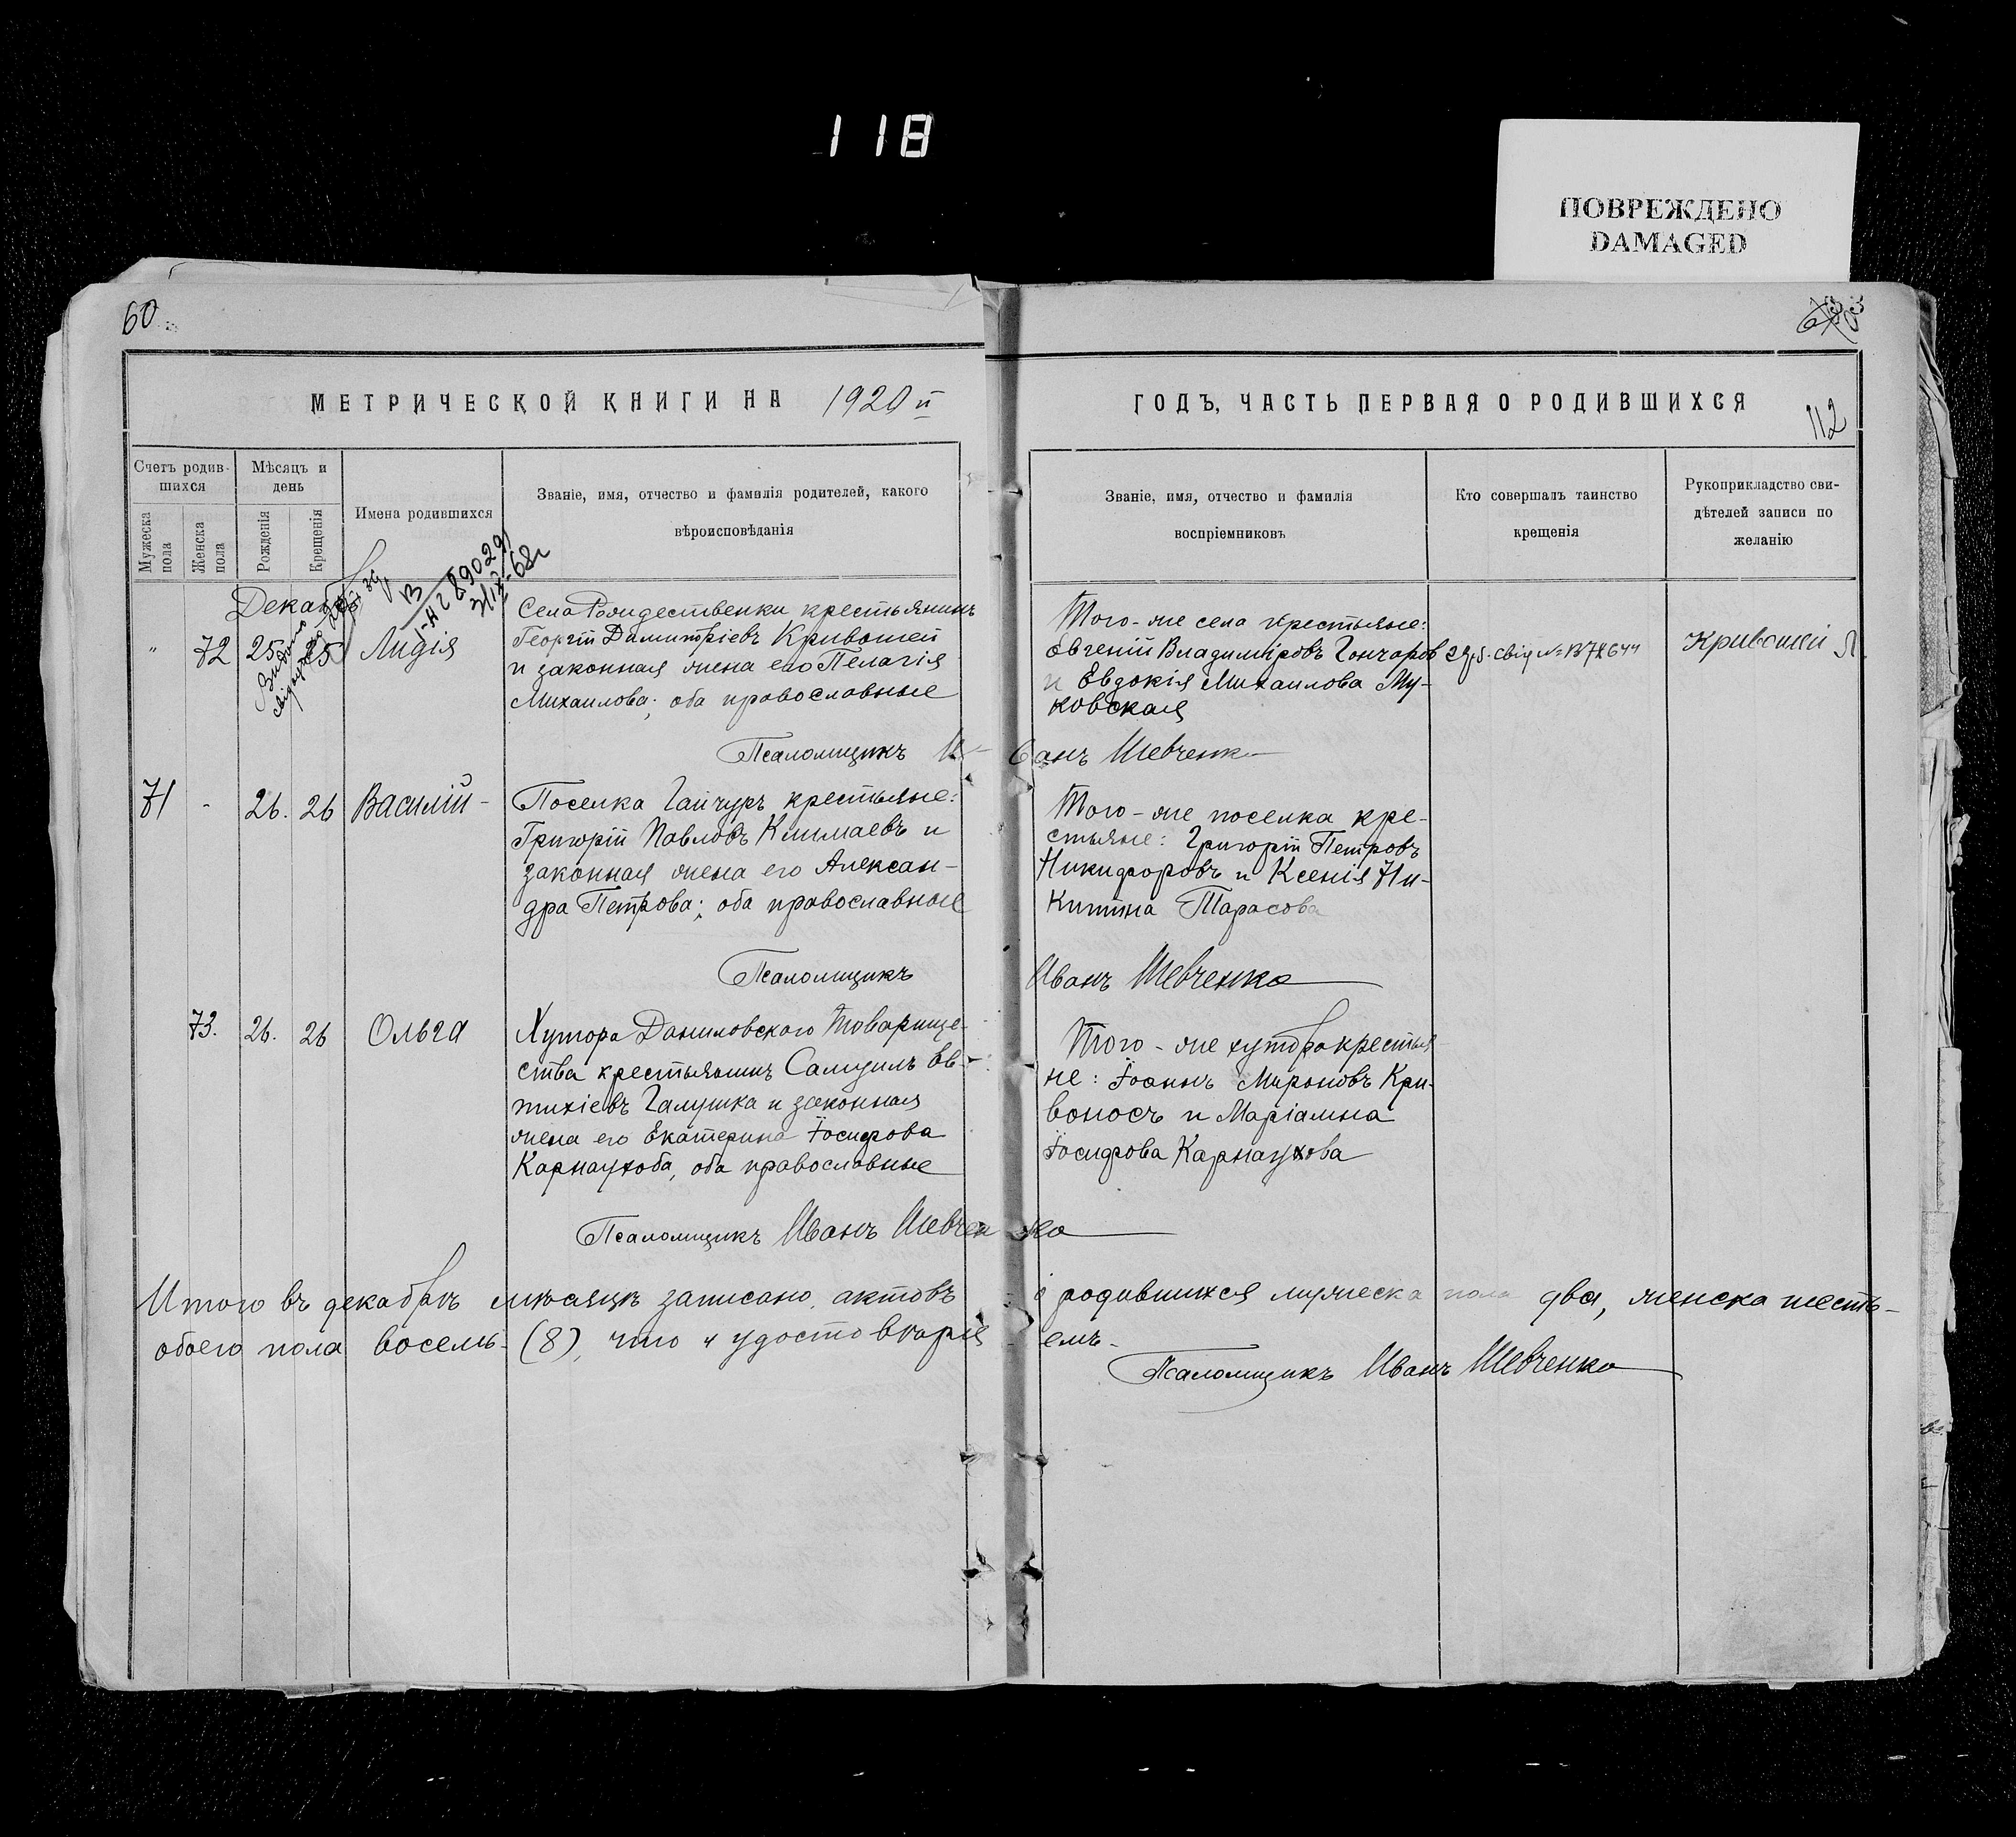 118
ПОВРЕЖДЕНО
DAMAGED
60
МЕТРИЧЕСКОЙ КНИГИ НА 1920й
ГОДЪ, ЧАСТЬ ПЕРВАЯ О РОДИВШИХСЯ
112
Счетъ родив-
шихся
Мѣсяцъ и
день
Мужеска
пола
Женска
пола
Рожденія
Крещенія
Имена родившихся
Званіе, имя, отчество и фамилія родителей, какого
вѣроисповѣданія
Званіе, имя, отчество и фамилія
воспріемниковъ
Кто совершалъ таинство
крещенія
Рукоприкладство сви-
дѣтелей записи по
желанію
Декабрь
72 25 25 Лидія
Села Рождественки крестьянинъ
Георгій Димитріевъ Кривошей
и законная жена его Пелагія
Михаилова; оба православные
Того-же села крестьяне:
Евгеній Владиміровъ Гончаровъ
и Евдокія Михаилова Му-
ковская
Кривошей Л
Псаломщикъ Иванъ Шевченк
71 - 26. 26 Василій -
Поселка Гайчуръ крестьяне:
Григорій Павловъ Климаевъ и
законная жена его Алексан-
дра Петрова; оба православные
Того-же поселка кре-
стьяне: Григорій Петровъ
Никифоровъ и Ксенія Ни-
китина Тарасова
Псаломщикъ Иванъ Шевченко
73. 26. 26 Ольга
Хутора Даниловского Товарище-
ства крестьянинъ Самуилъ Ев-
тихіевъ Галушка и законная
жена его Екатерина Іосифова
Карнаухова, оба православные
Того-же хутора крестья-
не: Іоаннъ Мироновъ Кри-
воносъ и Маріамна
Іосифова Карнаухова
Псаломщикъ Иванъ Шевченко
Итого въ декабрѣ мѣсяцѣ записано актовъ о родившихся мужеска пола два, женска шесть-
обоего пола восемь- (8), что и удостовѣряемъ-
Псаломщикъ Иванъ Шевченко